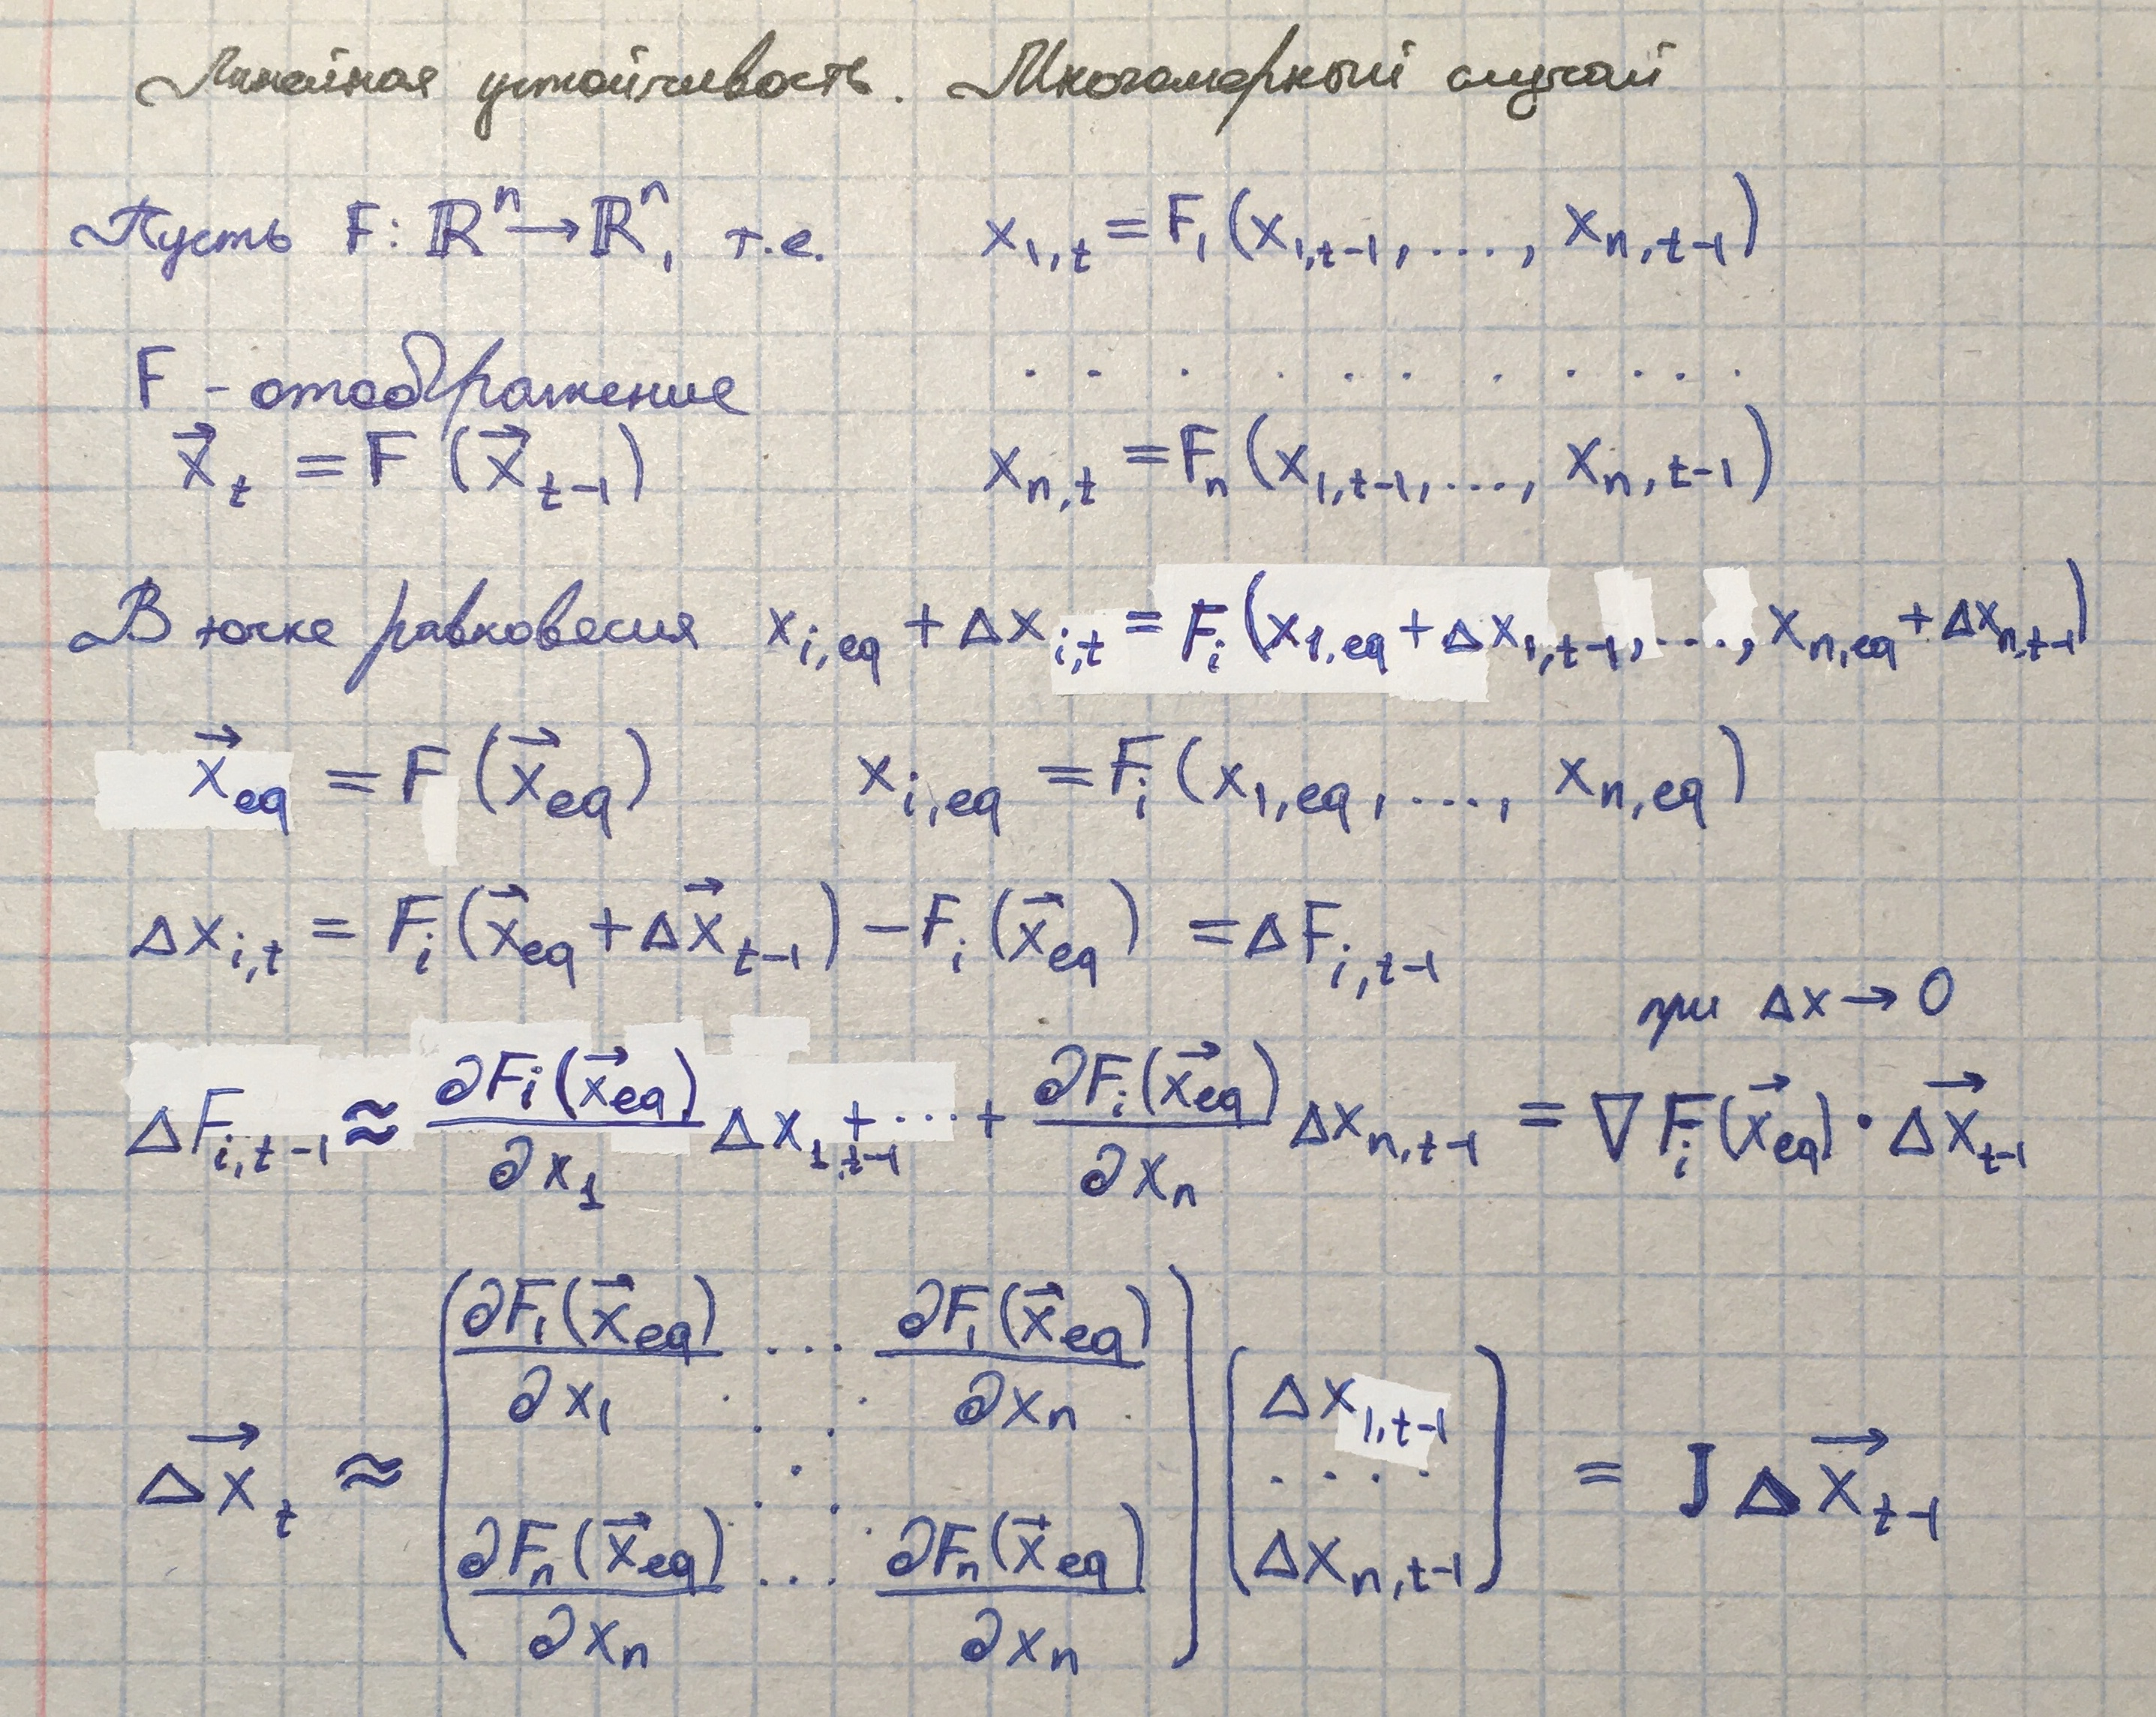 Линейная устойчивость. Многомерный случай
Пусть F: ℝⁿ → ℝⁿ, т.е. x_{1,t} = F_1(x_{1,t-1}, ..., x_{n,t-1})
F - отображение . . . . . . . . . . .
\vec{x}_t = F(\vec{x}_{t-1}) x_{n,t} = F_n(x_{1,t-1}, ..., x_{n,t-1})
В точке равновесия x_{i,eq} + Δx_{i,t} = F_i(x_{1,eq} + Δx_{1,t-1}, ..., x_{n,eq} + Δx_{n,t-1})
\vec{x}_{eq} = F(\vec{x}_{eq}) x_{i,eq} = F_i(x_{1,eq}, ..., x_{n,eq})
Δx_{i,t} = F_i(\vec{x}_{eq} + Δ\vec{x}_{t-1}) - F_i(\vec{x}_{eq}) = ΔF_{i,t-1}
при Δx → 0
ΔF_{i,t-1} ≈ \frac{∂F_i(\vec{x}_{eq})}{∂x_1} Δx_{1,t-1} + ... + \frac{∂F_i(\vec{x}_{eq})}{∂x_n} Δx_{n,t-1} = ∇F_i(\vec{x}_{eq}) · \vec{Δx}_{t-1}
\vec{Δx}_t ≈ \begin{pmatrix} \frac{∂F_1(\vec{x}_{eq})}{∂x_1} & ... & \frac{∂F_1(\vec{x}_{eq})}{∂x_n} \\ . & . & . \\ \frac{∂F_n(\vec{x}_{eq})}{∂x_n} & ... & \frac{∂F_n(\vec{x}_{eq})}{∂x_n} \end{pmatrix} \begin{pmatrix} Δx_{1,t-1} \\ .... \\ Δx_{n,t-1} \end{pmatrix} = J Δ\vec{x}_{t-1}